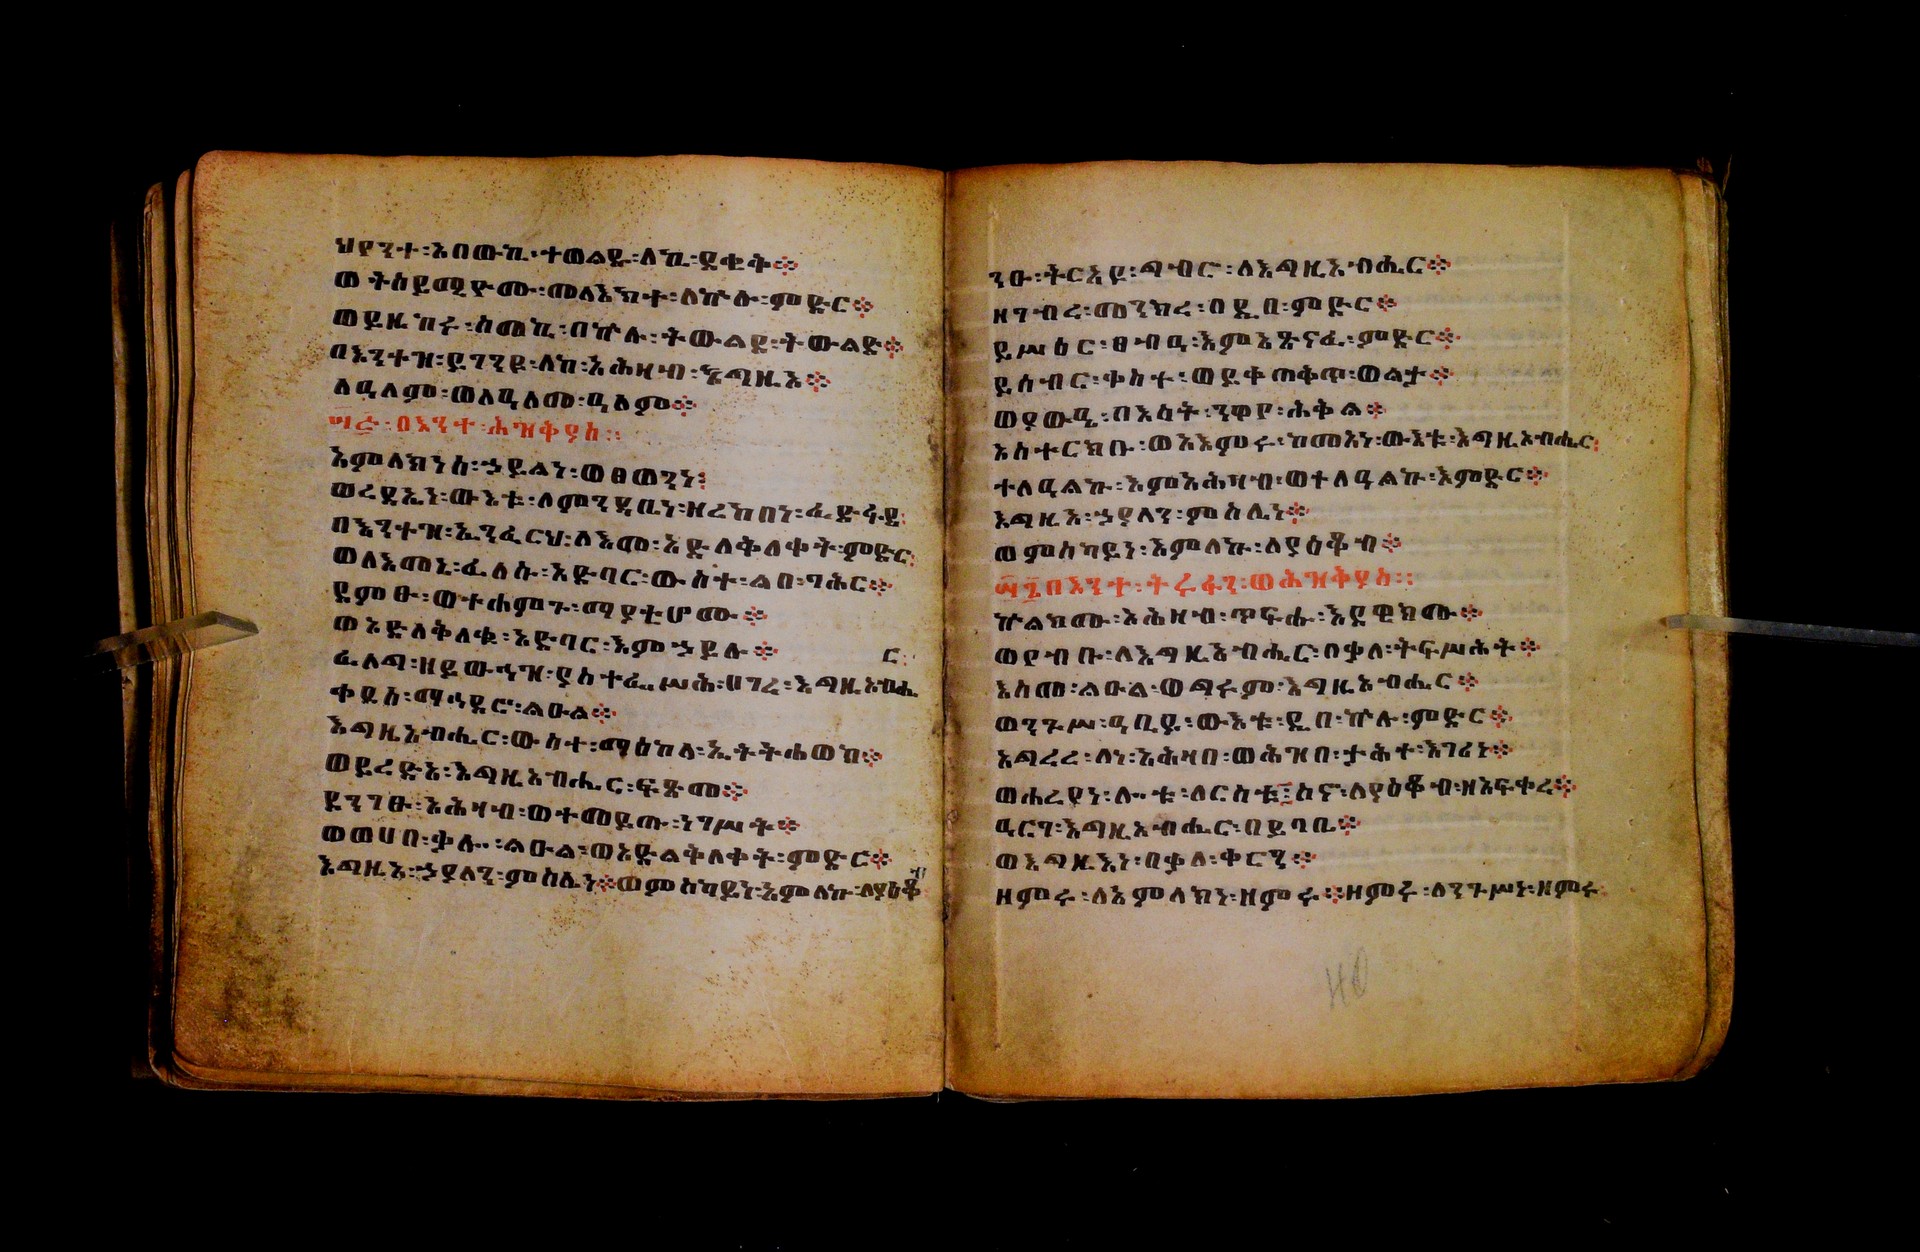 ህየንተ፡አበውኪ፡ተወልዱ፡ለኪ፡ደቂቅ፨
ወትሰይሚዮሙ፡መላእክተ፡ለኵሉ፡ምድር፨
ወይዘከሩ፡ስመኪ፡በኵሉ፡ትውልደ፡ትውልድ፨
በእንተዝ፡ይገንዩ፡ለከ፡አሕዛብ፡እግዚኦ፨
ለዓለም፡ወለዓለመ፡ዓለም፨
፵፭፡በእንተ፡ሕዝቅያስ።
አምላክነሰ፡ኃይልነ፡ወፀወንነ፡
ወረዳኢነ፡ውእቱ፡ለምንዳቤነ፡ዘረከበነ፡ፈድፋደ፡
በእንተዝ፡ኢንፈርህ፡ለእመ፡አድለቅለቀት፡ምድር፡
ወለእመኒ፡ፈለሱ፡አድባር፡ውስተ፡ልበ፡ባሕር፨
ደምፁ፡ወተሐምጉ፡ማያቲሆሙ፨
ወአድለቅለቁ፡አድባር፡እምኃይሉ፨
ር፡
ፈለግ፡ዘይውኅዝ፡ያስተፌሥሕ፡ሀገረ፡እግዚአብሔ
ቀደሰ፡ማኅደሮ፡ልዑል፨
እግዚአብሔር፡ውስተ፡ማእከላ፡ኢትትሐወክ፨
ወይረድኣ፡እግዚአብሔር፡ፍጽመ፨
ደንገፁ፡አሕዛብ፡ወተመይጡ፡ነገሥት፨
ወወሀበ፡ቃሎ፡ልዑል፡ወአድልቅለቀት፡ምድር፨
ብ
እግዚአ፡ኃያላን፡ምስሌነ፨ወምስካይነ፡አምላኩ፡ለያዕቆ
ንዑ፡ትርአዩ፡ግብሮ፡ለእግዚአብሔር፨
ዘገብረ፡መንክረ፡በዲበ፡ምድር፨
ይሥዕር፡ፀብዓ፡እምአጽናፈ፡ምድር፨
ይሰብር፡ቀስተ፡ወይቀጠቅጥ፡ወልታ፨
ወያውዒ፡በእሳት፡ንዋየ፡ሕቅል፨
አስተርክቡ፡ወአእምሩ፡ከመአነ፡ውእቱ፡እግዚአብሔር፡
ተለዓልኩ፡እምአሕዛብ፡ወተለዓልኩ፡እምድር፨
እግዚአ፡ኃያላን፡ምስሌነ፨
ወምስካይነ፡አምላኩ፡ለያዕቆብ፨
፵፮በእንተ፡ትሩፋን፡ወሕዝቅያስ።
ኵልክሙ፡አሕዛብ፡ጥፍሑ፡እደዊክሙ፨
ወየብቡ፡ለእግዚአብሔር፡በቃለ፡ትፍሥሕት፨
እስመ፡ልዑል፡ወግሩም፡እግዚአብሔር፨
ወንጉሥ፡ዓቢይ፡ውእቱ፡ዲበ፡ኵሉ፡ምድር፨
አግረረ፡ለነ፡አሕዛበ፡ወሕዝበ፡ታሕተ፡እገሪነ፨
ወሐረየነ፡ሎቱ፡ለርስቱ፡ስኖ፡ለያዕቆብ፡ዘአፍቀረ፨
ዓርገ፡እግዚአብሔር፡በይባቤ፨
ወእግዚእነ፡በቃለ፡ቀርን፨
ዘምሩ፡ለአምላክነ፡ዘምሩ፨ዘምሩ፡ለንጉሥነ፡ዘምሩ
40